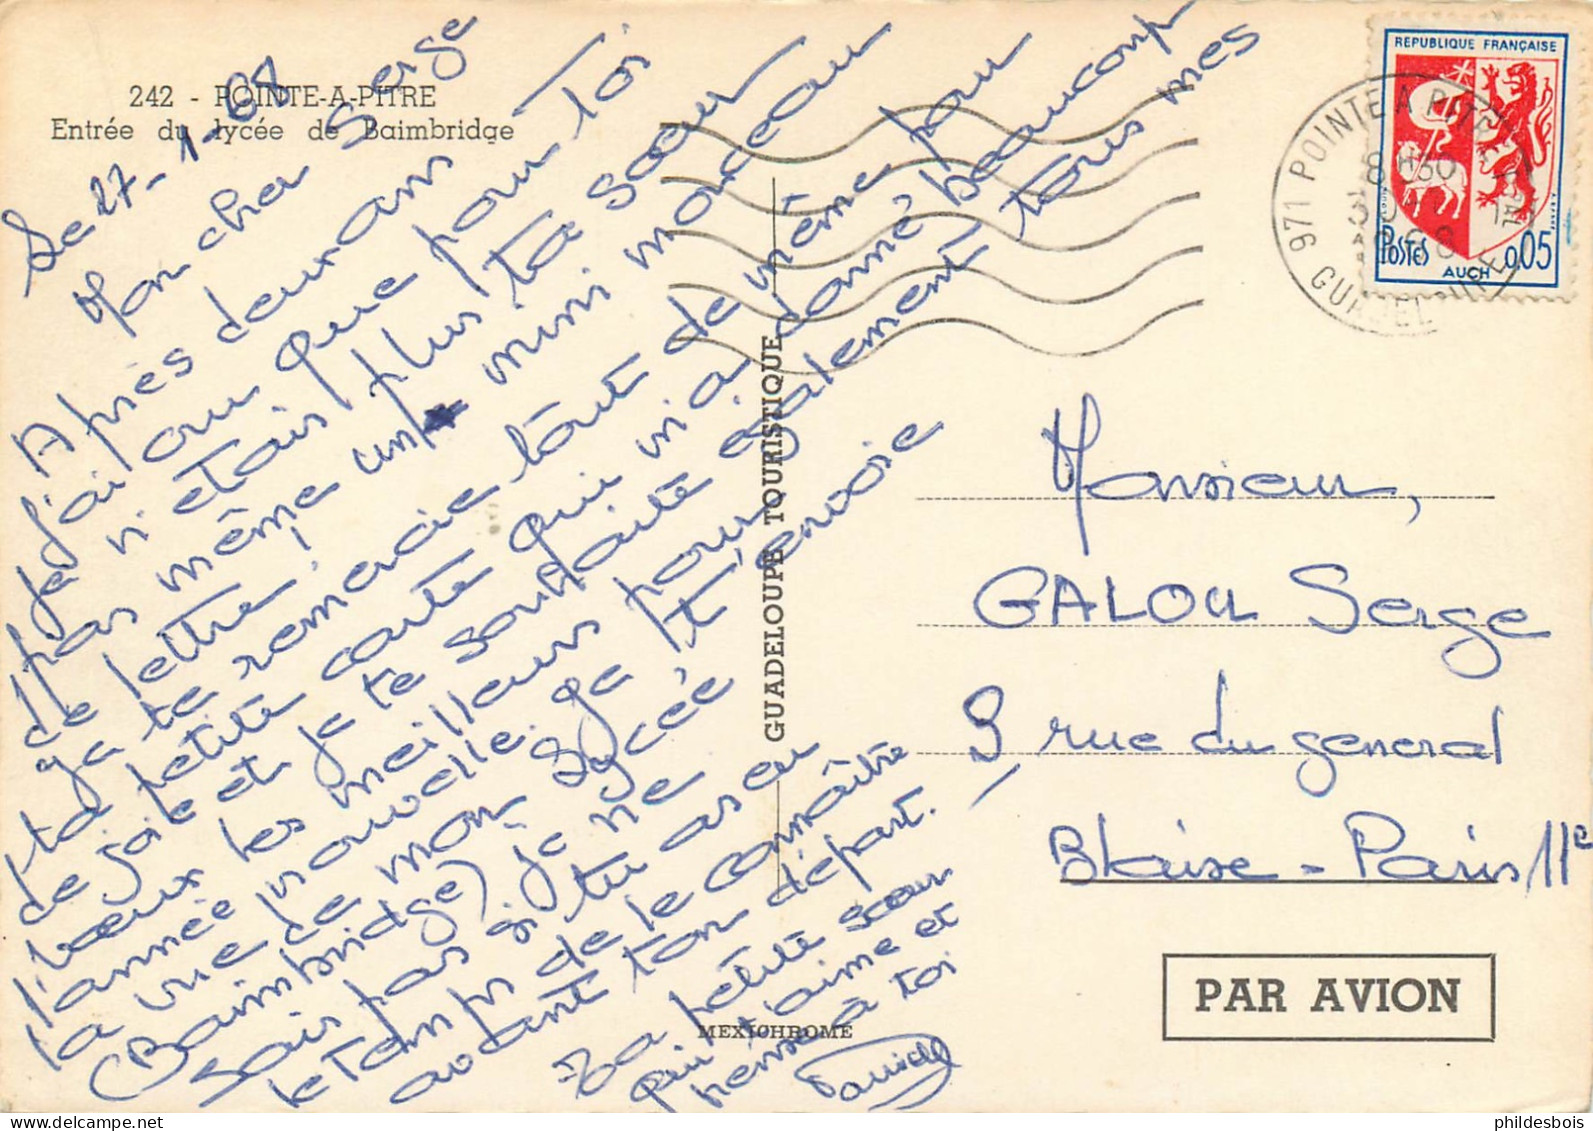 242 - POINTE-A-PITRE
Entrée du lycée de Baimbridge
Le 27-1-68
Mon cher Serge
Après deux ans
j'ai cru que pour toi
je n'étais plus ta sœur
pas même un mini morceau
de lettre !
ça te remercie tout de même pour
ta petite carte qui m'a donné beaucoup
de joie et je te souhaite également tous mes
vœux les meilleurs pour
l'année nouvelle. ça t'envoie
la vue de mon lycée
(Baimbridge) je ne
sais pas si tu as eu
le temps de le connaître
avant ton départ.
Ta petite sœur
qui t'aime et
pense à toi
GUADELOUPE TOURISTIQUE
MEXICHROME
REPUBLIQUE FRANÇAISE
POSTES
AUCH
0,05
971 POINTE A PITRE
8H30
GUADELOUPE
Monsieur,
GALOU Serge
9 rue du general
Blaise - Paris 11e
PAR AVION
phildesbois